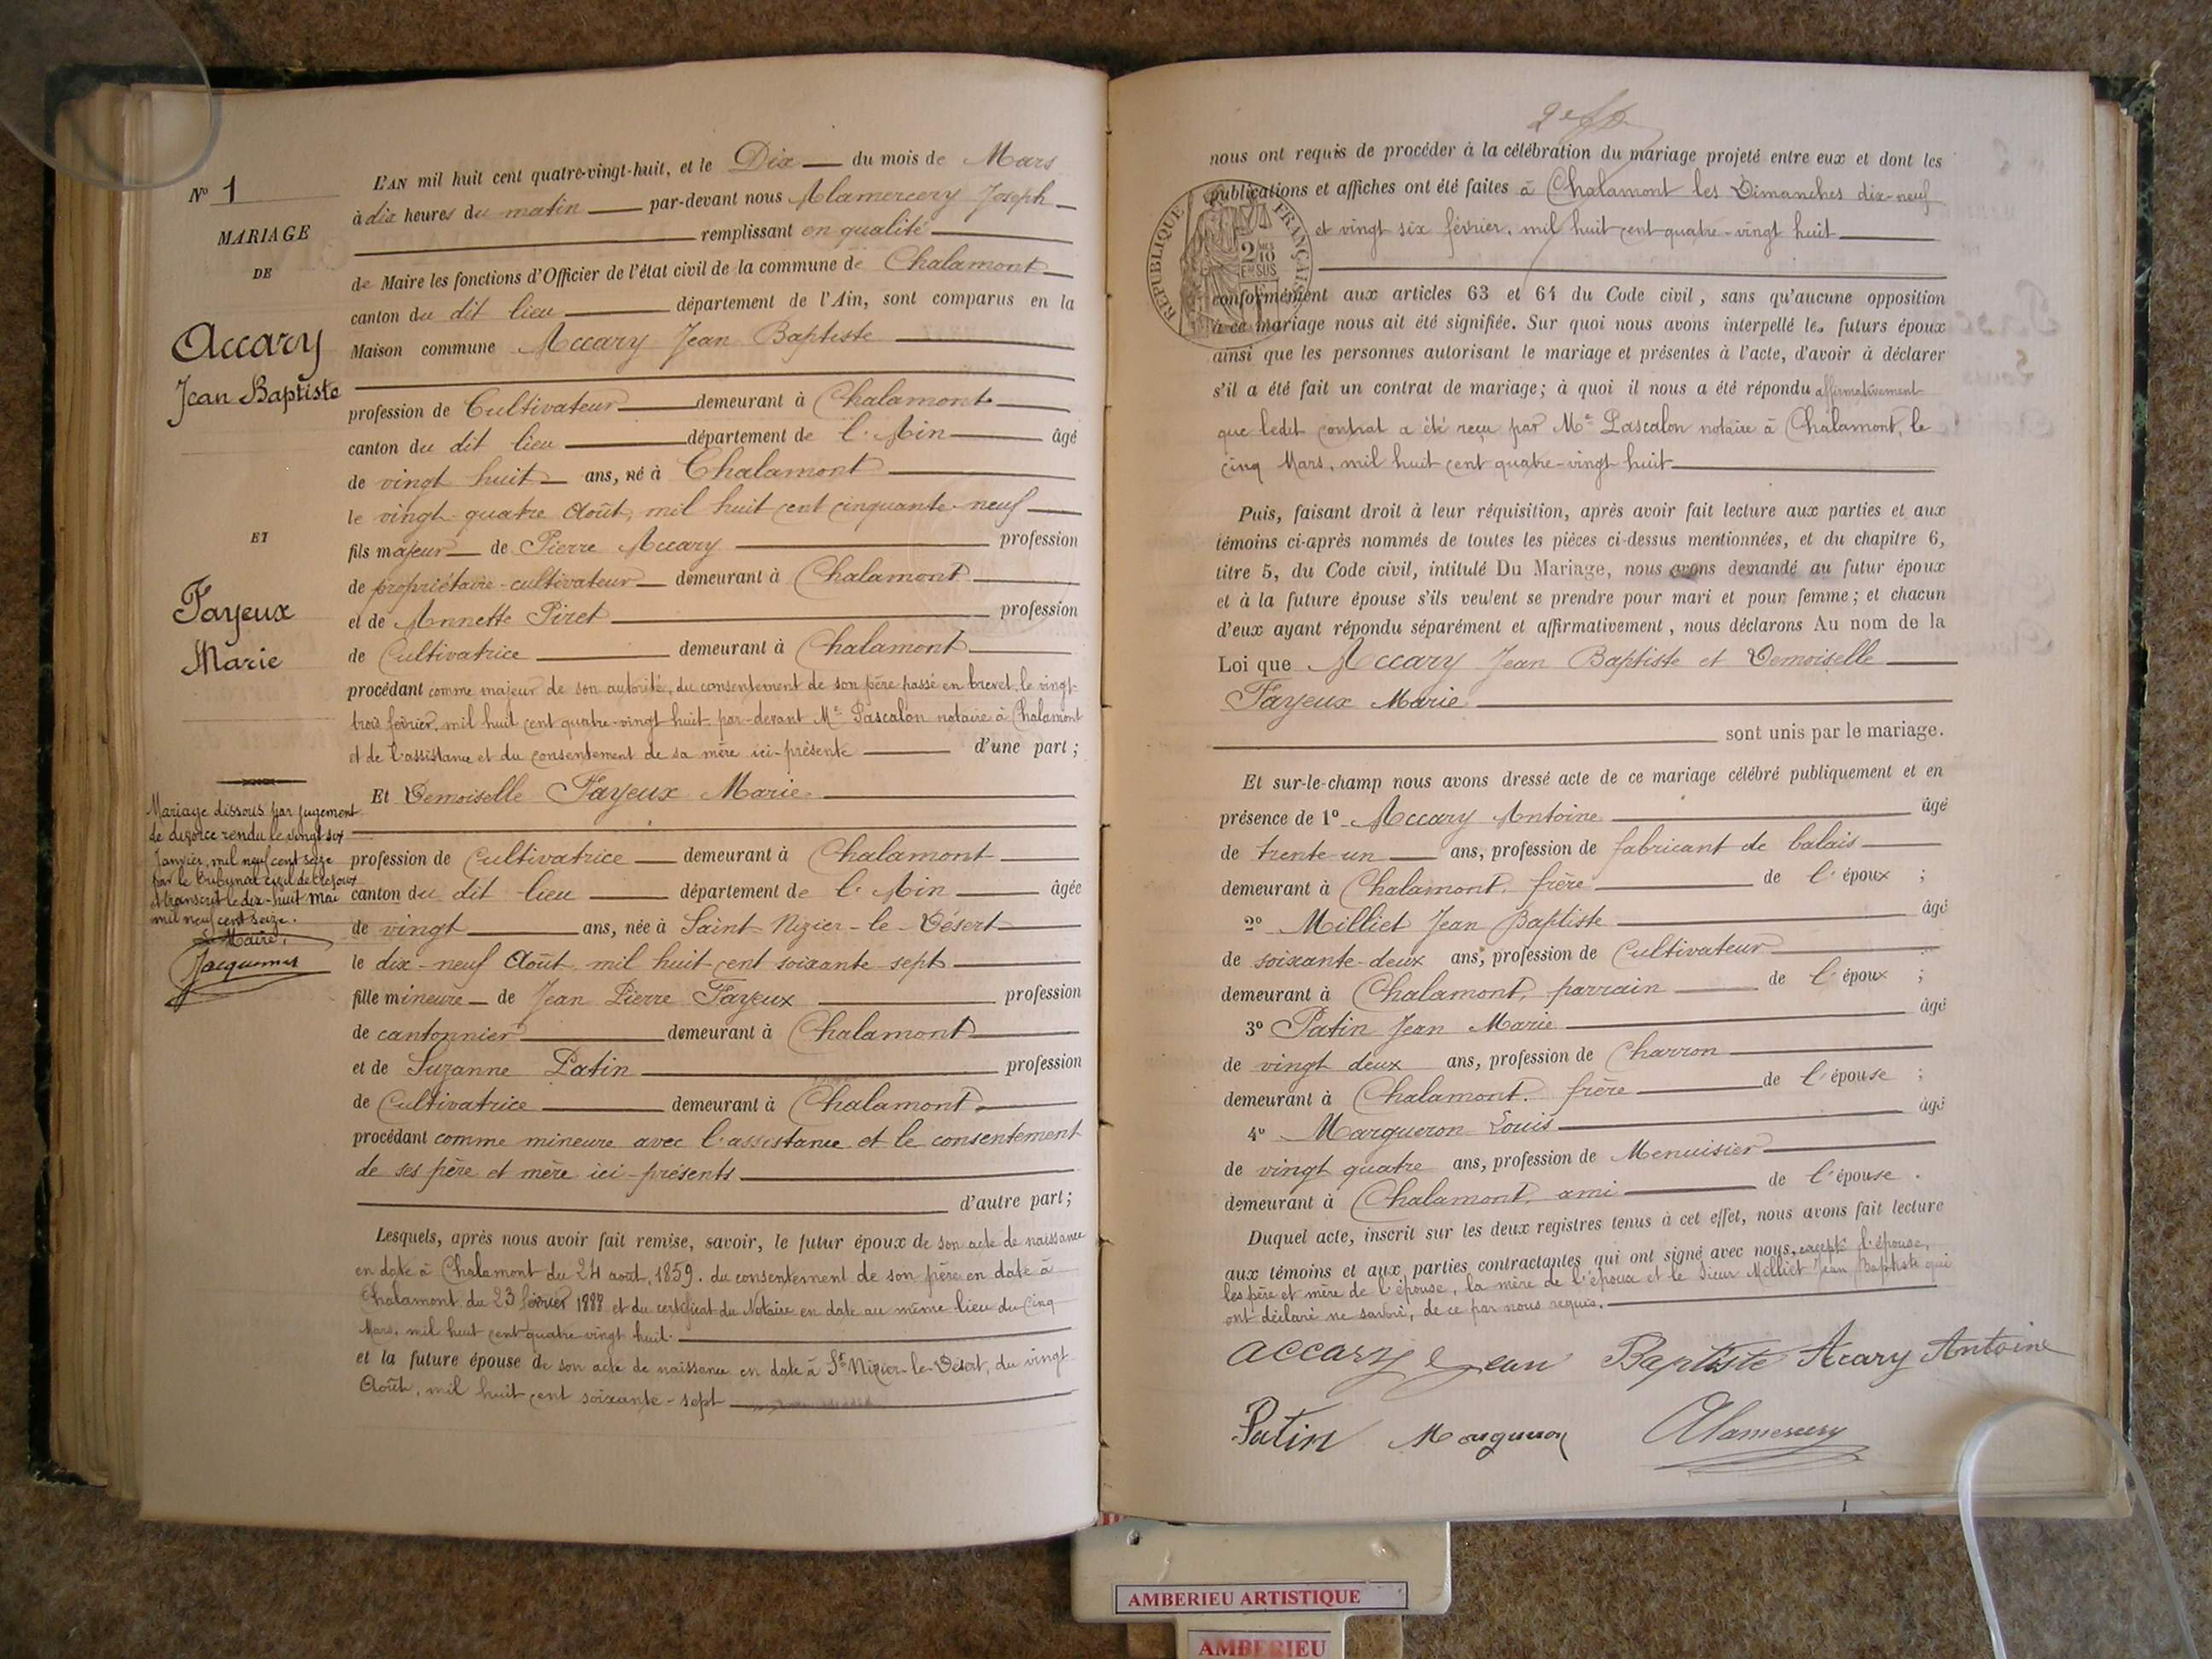 N° 1
MARIAGE
DE
Accary
Jean Baptiste
ET
Fayeux
Marie
Mariage dissous par jugement
de divorce rendu le vingt six
Janvier, mil neuf cent seize
par le tribunal civil de Trévoux
et transcrit le dix-huit Mai
mil neuf cent seize.
Le Maire,
Jacquemet
L'AN mil huit cent quatre-vingt-huit, et le Dix du mois de Mars
à dix heures du matin par-devant nous Alamercery Joseph
remplissant en qualité
de Maire les fonctions d'Officier de l'état civil de la commune de Chalamont
canton du dit lieu département de l'Ain, sont comparus en la
Maison commune Accary Jean Baptiste
profession de Cultivateur demeurant à Chalamont
canton du dit lieu département de l'Ain âgé
de vingt huit ans, né à Chalamont
le vingt-quatre Août, mil huit cent cinquante-neuf
fils majeur de Pierre Accary profession
de propriétaire-cultivateur demeurant à Chalamont
et de Annette Piret profession
de Cultivatrice demeurant à Chalamont
procédant comme majeur de son autorité, du consentement de son père passé en brevet, le vingt-
trois février, mil huit cent quatre-vingt huit par-devant Me Pascalon notaire à Chalamont
et de l'assistance et du consentement de sa mère ici-présente d'une part ;
Et Demoiselle Fayeux Marie
profession de Cultivatrice demeurant à Chalamont
canton du dit lieu département de l'Ain âgée
de vingt ans, née à Saint-Nizier-le-Désert
le dix-neuf Août mil huit cent soixante sept
fille mineure de Jean Pierre Fayeux profession
de cantonnier demeurant à Chalamont
et de Suzanne Patin profession
de Cultivatrice demeurant à Chalamont
procédant comme mineure avec l'assistance et le consentement
de ses père et mère ici-présents
d'autre part ;
Lesquels, après nous avoir fait remise, savoir, le futur époux de son acte de naissance
en date à Chalamont du 24 août, 1859. du consentement de son père en date à
Chalamont du 23 février 1888 et du certificat du Notaire en date au même lieu du Cinq
Mars, mil huit cent quatre vingt huit.
et la future épouse de son acte de naissance en date à St Nizier-le-Désert, du vingt
Août, mil huit cent soixante-sept
nous ont requis de procéder à la célébration du mariage projeté entre eux et dont les
publications et affiches ont été faites à Chalamont les Dimanches dix-neuf
et vingt six février, mil huit cent quatre-vingt huit
REPUBLIQUE FRANÇAISE
2/10 EN SUS
conformément aux articles 63 et 64 du Code civil, sans qu'aucune opposition
à ce mariage nous ait été signifiée. Sur quoi nous avons interpellé les futurs époux
ainsi que les personnes autorisant le mariage et présentes à l'acte, d'avoir à déclarer
s'il a été fait un contrat de mariage ; à quoi il nous a été répondu affirmativement
que ledit contrat a été reçu par Me Pascalon notaire à Chalamont, le
cinq Mars, mil huit cent quatre-vingt huit
Puis, faisant droit à leur réquisition, après avoir fait lecture aux parties et aux
témoins ci-après nommés de toutes les pièces ci-dessus mentionnées, et du chapitre 6,
titre 5, du Code civil, intitulé Du Mariage, nous avons demandé au futur époux
et à la future épouse s'ils veulent se prendre pour mari et pour femme ; et chacun
d'eux ayant répondu séparément et affirmativement, nous déclarons Au nom de la
Loi que Accary Jean Baptiste et Demoiselle
Fayeux Marie
sont unis par le mariage.
Et sur-le-champ nous avons dressé acte de ce mariage célébré publiquement et en
présence de 1° Accary Antoine âgé
de trente-un ans, profession de fabricant de balais
demeurant à Chalamont, frère de l'époux ;
2° Milliet Jean Baptiste âgé
de soixante-deux ans, profession de Cultivateur
demeurant à Chalamont, parrain de l'époux ;
3° Patin Jean Marie âgé
de vingt deux ans, profession de Charron
demeurant à Chalamont, frère de l'épouse ;
4° Margueron Louis âgé
de vingt quatre ans, profession de Menuisier
demeurant à Chalamont, ami de l'épouse.
Duquel acte, inscrit sur les deux registres tenus à cet effet, nous avons fait lecture
aux témoins et aux parties contractantes qui ont signé avec nous, excepté l'épouse,
les père et mère de l'épouse, la mère de l'époux et le Sieur Milliet Jean Baptiste qui
ont déclaré ne savoir, de ce par nous requis.
accary Jean Baptiste Acary Antoine
Patin Margueron Alamercery
AMBERIEU ARTISTIQUE
AMBERIEU